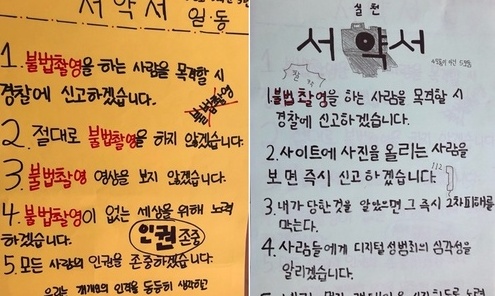 서약서
일동
1. 불법촬영을 하는 사람을 목격할 시
경찰에 신고하겠습니다.
2. 절대로 불법촬영을 하지 않겠습니다.
3. 불법촬영 영상을 보지 않겠습니다.
4. 불법촬영이 없는 세상을 위해 노력
하겠습니다.
인권존중
5. 모든 사람의 인권을 존중하겠습니다.
우리는 개개인의 인격을 동등히 생각하고
실천
서약서
찰칵
1. 불법촬영을 하는 사람을 목격할 시
경찰에 신고하겠습니다.
2. 사이트에 사진을 올리는 사람을
보면 즉시 신고하겠습니다.
112
3. 내가 당한것을 알았으면 그 즉시 2차피해를
막는다.
4. 사람들에게 디지털 성범죄의 심각성을
알리겠습니다.